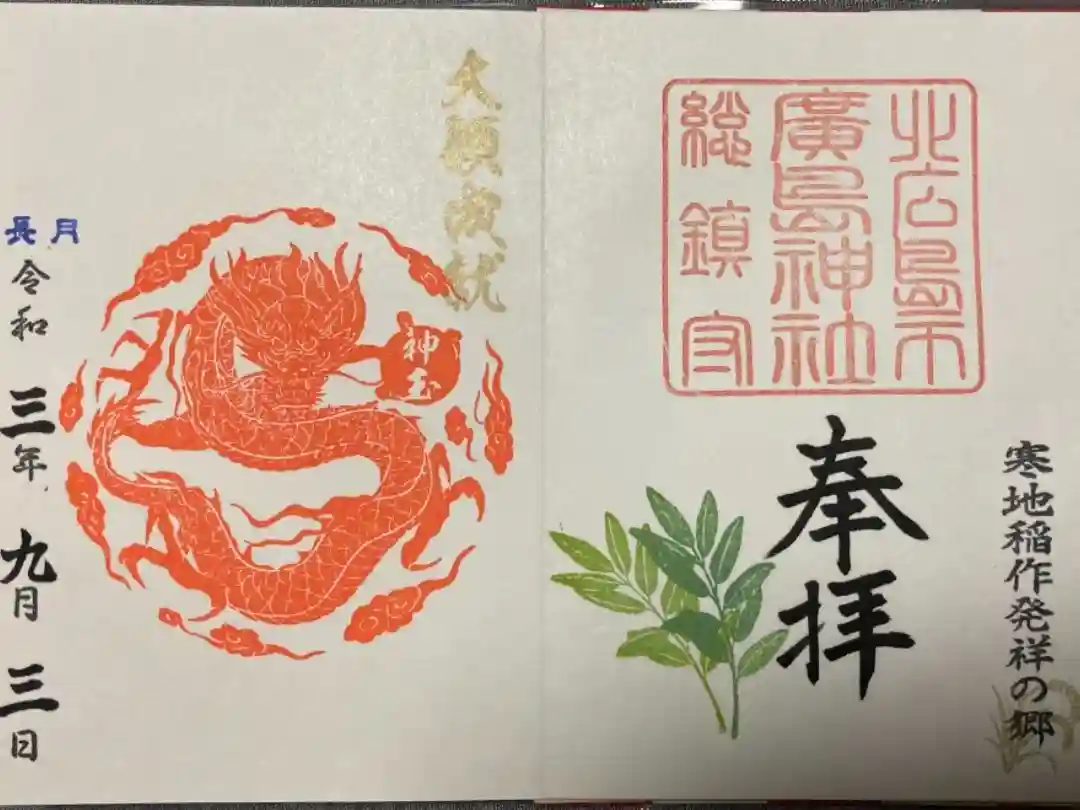 寒地稲作発祥の郷
北広島市
廣島神社
総鎮守
奉拝
大願成就
神玉
長月
令和三年九月三日